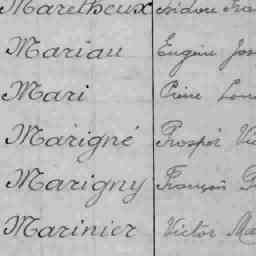 Maretheux Isidore
Mariau Eugène
Mari Pierre
Marigné Prosper
Marigny François
Marinier Victor